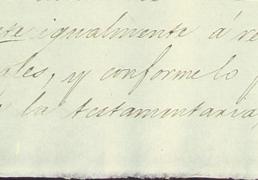 igualmente á
y conforme lo
la testamentaria,